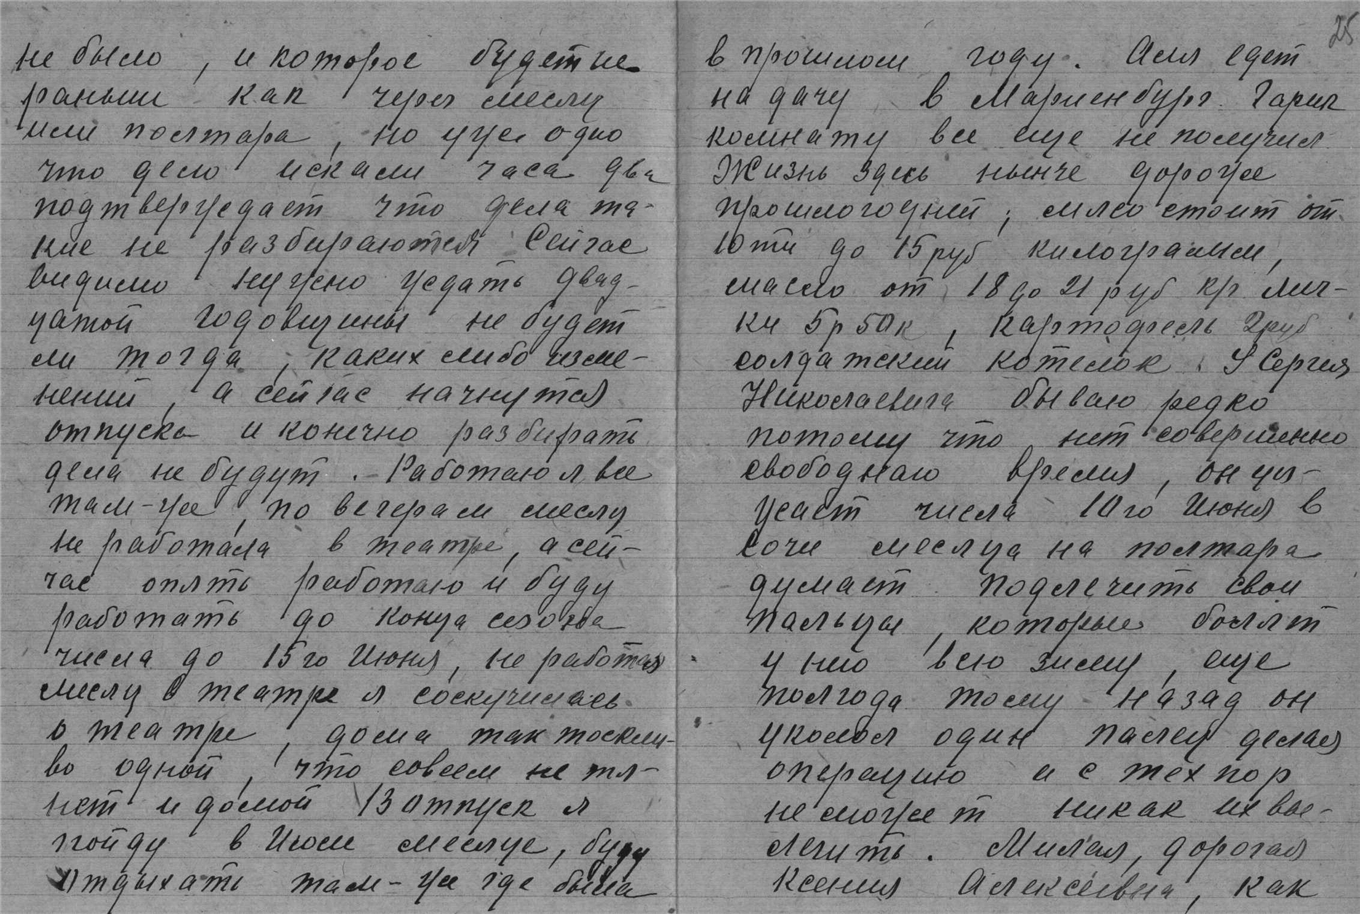 не было, и которое будет не
раньши как через месяц
или полтара, но уже одно
что дело искали часа два
подтверждает что дела та-
кие не разбираются Сейчас
видимо нужно ждать двад-
цатой годовщины не будет
ли тогда, каких либо изме-
нений, а сейчас начнутся
отпуска и конечно разбирать
дела не будут. Работаю я все
там-же, по вечерам месяц
не работала в театре, а сей-
час опять работаю и буду
работать до конца сезона
числа до 15го Июня, не работая
месяц в театре я соскучилась
о театре, дома так тоскли-
во одной, что совсем не тя-
нет и домой В отпуск я
пойду в Июле месяце, буду
отдыхать там-же где была
25
в прошлом году. Аля едет
на дачу в Мариенбург. Гарик
комнату все еще не получил
Жизнь здесь нынче дороже
прошлогодней, мясо стоит от
10ти до 15 руб килограмм,
масло от 18 до 21 руб кр. Яич-
ки 5р 50к, картофель 2руб
солдатский котелок. У Сергея
Николаевича бываю редко
потому что нет совершенно
свободнаго время, он уез-
жает числа 10го Июня в
Сочи месяца на полтара
думает подлечить свои
пальцы, которые болят
у нио всю зиму, еще
полгода тому назад он
уколол один палец делая
операцию и с тех пор
не может никак их вы-
лечить. Милая, дорогая
Ксения Алексеевна, как